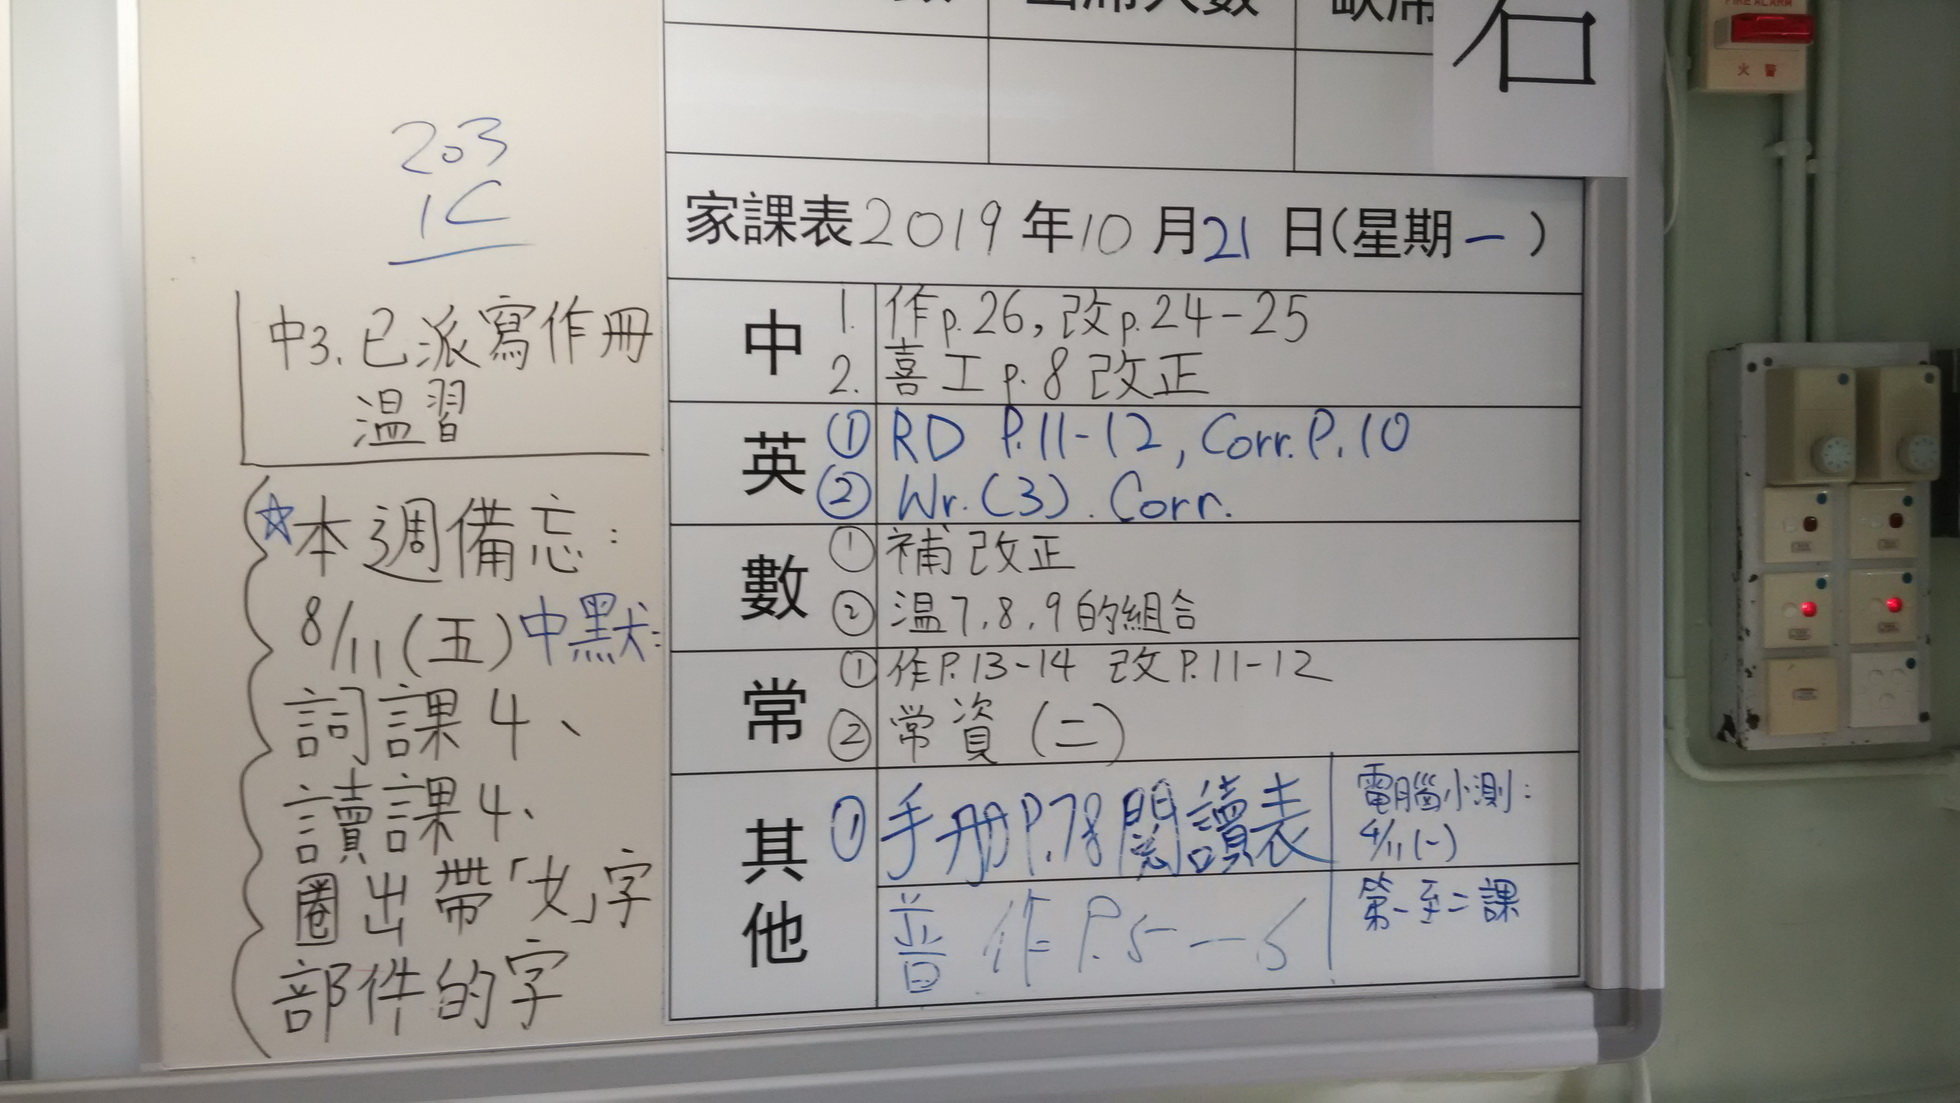 出席人數
石
FIRE ALARM
火警
203
1C
家課表2019年10月21日(星期一)
中3.已派寫作冊
溫習
中
1. 作p.26,改p.24-25
2. 喜工p.8改正
英
① RD P.11-12, Corr.P.10
② Wr.(3). Corr.
☆本週備忘:
8/11(五)中默:
詞課4、
讀課4、
圈出帶「女」字
部件的字
數
① 補改正
② 溫7,8,9的組合
常
① 作P.13-14 改P.11-12
② 常資(二)
其他
① 手册P.78閱讀表
普 作P.5-6
電腦小測:
4/11(一)
第一至二課